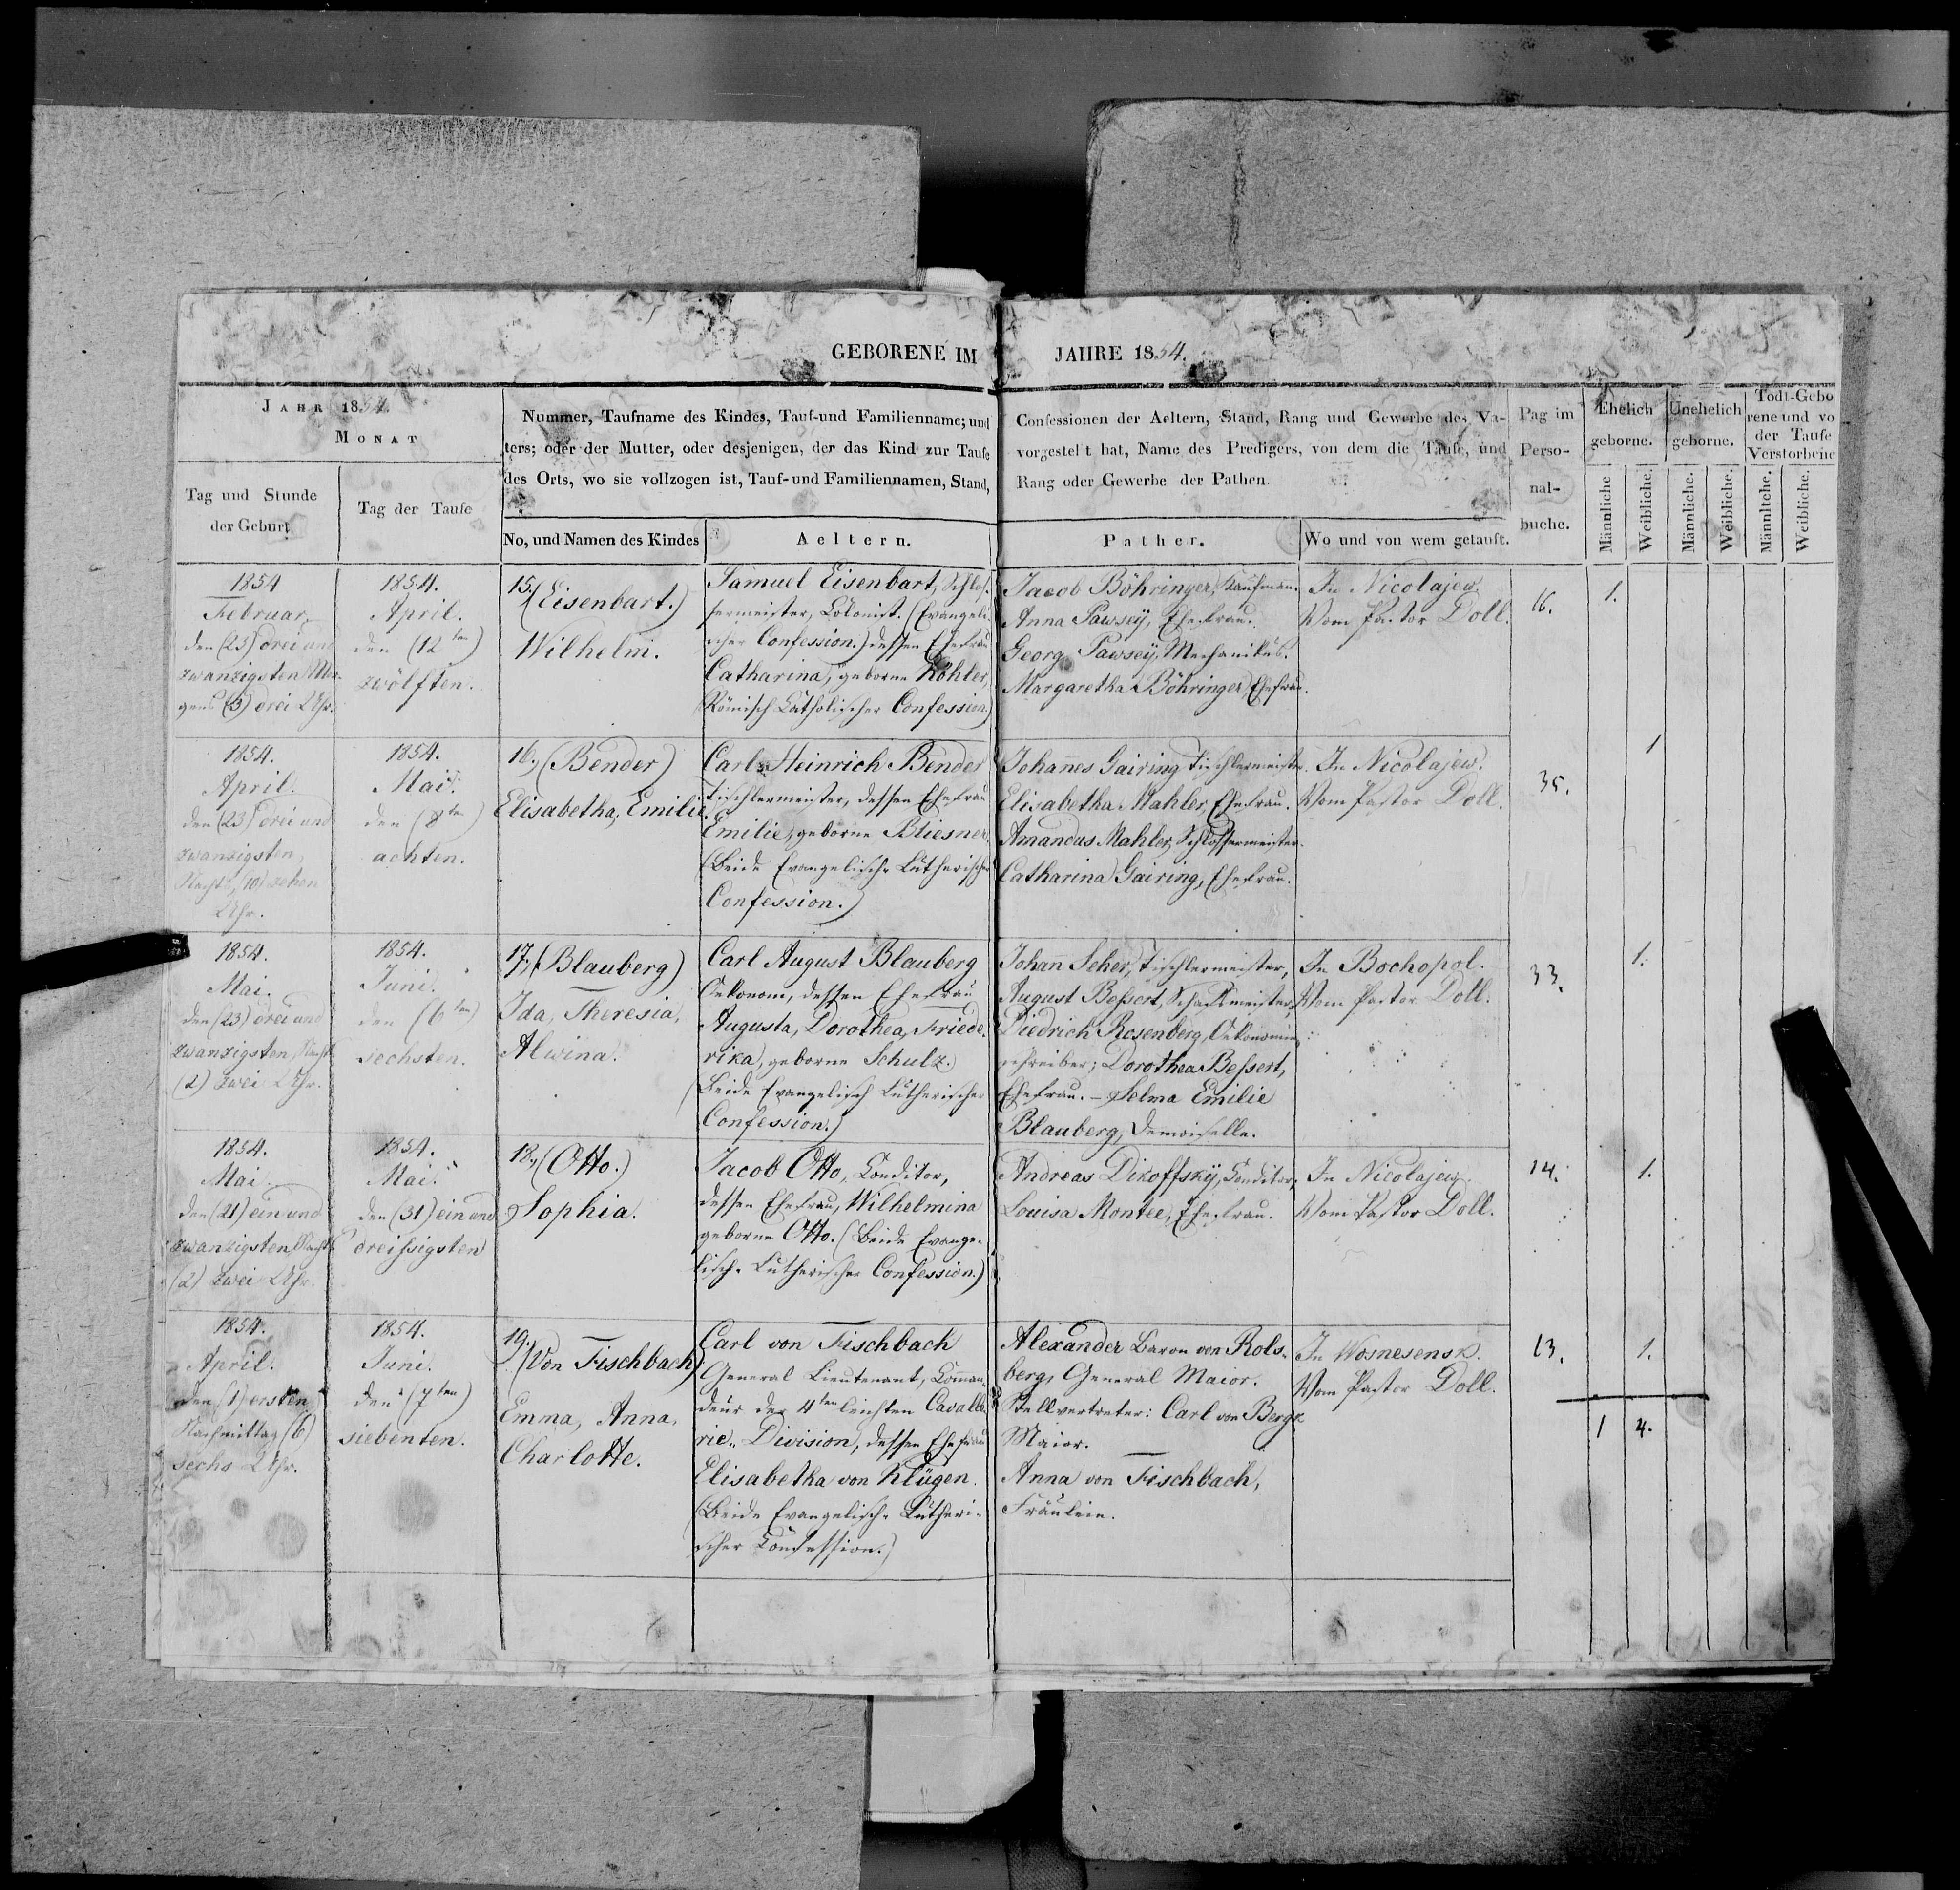 GEBORENE IM JAHRE 1854.
JAHR 1854.
MONAT
Tag und Stunde
der Geburt
Tag der Taufe
Nummer, Taufname des Kindes, Tauf-und Familienname; und
ters; oder der Mutter, oder desjenigen, der das Kind zur Taufe
des Orts, wo sie vollzogen ist, Tauf-und Familiennamen, Stand,
No, und Namen des Kindes
Aeltern.
Confessionen der Aeltern, Stand, Rang und Gewerbe des Va-
vorgestellt hat, Name des Predigers, von dem die Taufe, und
Rang oder Gewerbe der Pathen.
Pather.
Wo und von wem getauft.
Pag im
Perso-
nal-
buche.
Ehelich
geborne.
Unehelich
geborne.
Todt-Gebo
rene und vo
der Taufe
Verstorbene
Männliche
Weibliche.
Männliche.
Weibliche.
Männliche.
Weibliche.
1854
Februar,
den (23) drei und
zwanzigsten Mor-
gens (3) drei Uhr.
1854.
April.
den (12ten)
zwölften.
15. (Eisenbart.)
Wilhelm.
Samuel Eisenbart, Schlos-
sermeister, Colonist. (Evangeli-
scher Confession.) dessen Ehefrau
Catharina, geborne Köhler,
Römisch Catholischer Confession)
Jacob Böhringer, Kaufman.
Anna Pawsey, Ehefrau.
Georg Pawsey, Mechanikus.
Margaretha Böhringer, Ehefrau.
In Nicolajew.
Vom Pastor Doll.
16.
1.
1854.
April.
den (23) drei und
zwanzigsten,
Nachts, (10) zehen
Uhr.
1854.
Mai.
den (8ten)
achten.
16, (Bender)
Elisabetha, Emilie.
Carl Heinrich Bender
Tischlermeister, dessen Ehefrau
Emilie, geborne Bliesner.
(Beide Evangelisch-Lutherischer
Confession.)
Johannes Gairing Tischlermeister.
Elisabetha Mahler, Ehefrau.
Amandus Mahler, Schlossermeister.
Catharina Gairing, Ehefrau.
In Nicolajew.
Vom Pastor Doll.
35.
1
1854.
Mai.
den (23) drei und
zwanzigsten, Nachts
(2) zwei Uhr.
1854.
Juni.
den (6ten)
sechsten.
17, (Blauberg)
Ida, Theresia,
Alwina.
Carl August Blauberg
Oekonom, dessen Ehefrau
Augusta, Dorothea, Friede-
rika, geborne Schulz.
(Beide Evangelisch Lutherischer
Confession.)
Johann Seher, Tischlermeister,
August Bessert, Schafmeister,
Diedrich Rosenberg, Oekonomie-
schreiber; Dorothea Bessert,
Ehefrau. - Selma Emilie
Blauberg, Demoiselle.
In Bochopol.
Vom Pastor Doll.
33.
1.
1854.
Mai.
den (21) ein und
zwanzigsten, Nachts
(2) zwei Uhr.
1854.
Mai.
den (31) ein und
dreissigsten
18., (Otto.)
Sophia.
Jacob Otto, Conditor,
dessen Ehefrau, Wilhelmina
geborne Otto. (Beide Evange-
lisch-Lutherischer Confession.)
Andreas Dikoffsky, Conditor,
Louisa Montee, Ehefrau.
In Nicolajew.
Vom Pastor Doll.
14.
1.
1854.
April.
den (1) ersten
Nachmittag (6)
sechs Uhr.
1854.
Juni.
den (7ten)
siebenten.
19. (Von Fischbach)
Emma, Anna,
Charlotte.
Carl von Fischbach
General Lieutenant, Comman-
deur der 4ten leichten Cavalle-
rie-Division, dessen Ehefrau
Elisabetha von Klügen.
(Beide Evangelisch-Lutheri-
scher Confession.)
Alexander Baron von Rols-
berg, General Maior.
Stellvertreter: Carl von Bergk
Maior.
Anna von Fischbach,
Fräulein.
In Wosnesensk.
Vom Pastor Doll.
13.
1.
1 4.